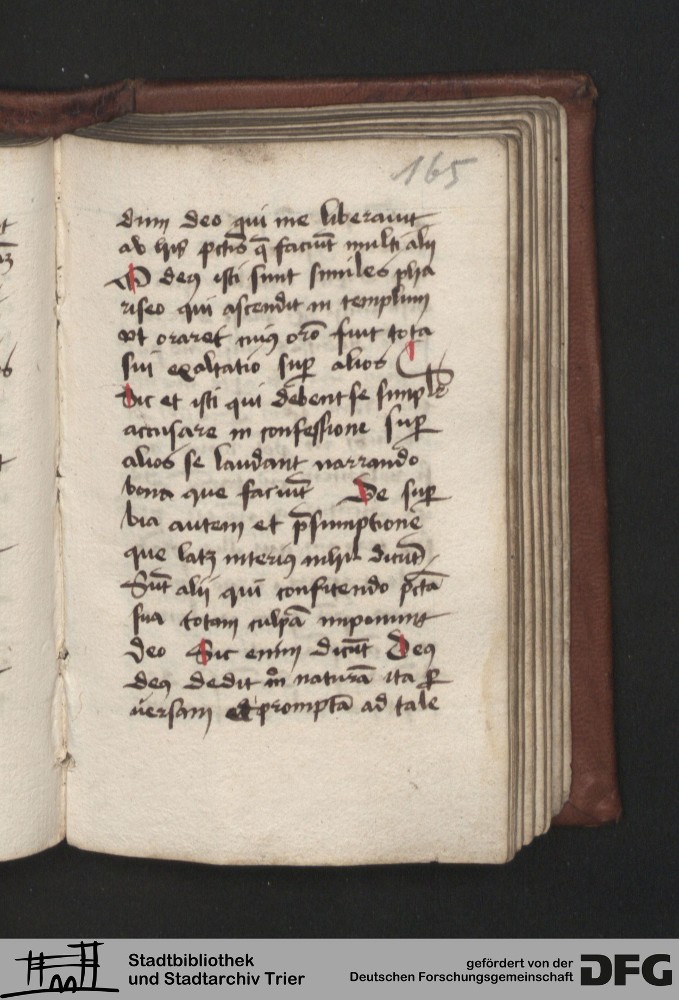 165
dum deo qui me liberauit
ab his pctis q̄ faciūt multi alii
O deus isti sunt similes pha
riseo qui ascendit in templum
vt oraret cuius orō fuit tota
sui exaltatio sup alios
Sic et isti qui debent se simpl̄r
accusare in confessione sup
alios se laudant narrando
bona que faciūt De sup
bia autem et p̄sumptione
que latz interius nihil dicūt
Sūt alii qui confitendo pctā
sua totam culpā imponunt
deo Sic enim dicūt Deus
deus dedit m naturā ita per
uersam et promptā ad tale
Stadtbibliothek
und Stadtarchiv Trier
gefördert von der
Deutschen Forschungsgemeinschaft
DFG